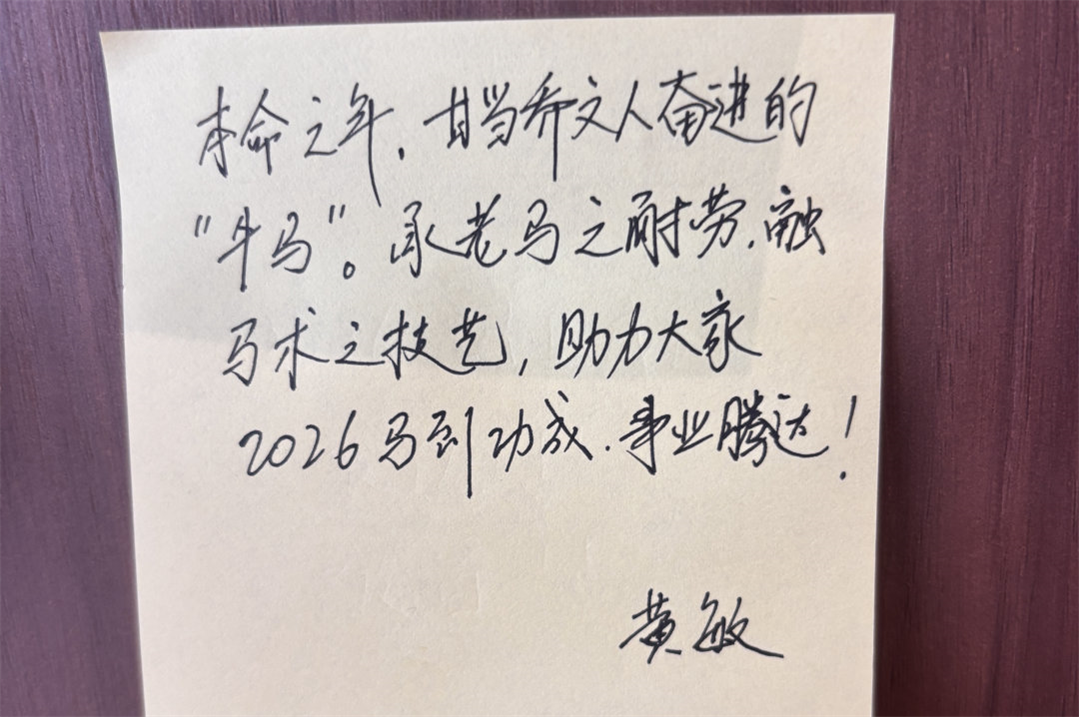 本命之年，甘当乔文人奋进的
“牛马”。承老马之耐劳，融
马术之技艺，助力大家
2026马到功成，事业腾达！
黄敏